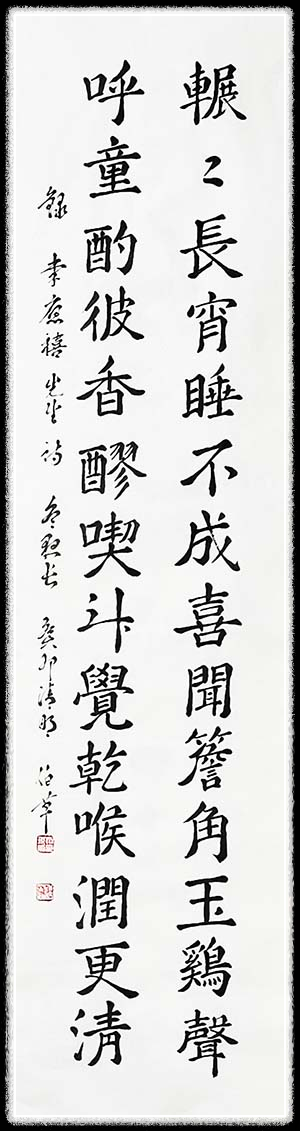 輾〻長宵睡不成喜聞簷角玉鷄聲
呼童酌彼香醪喫斗覺乾喉潤更清
錄 李應禧先生詩 癸卯清明